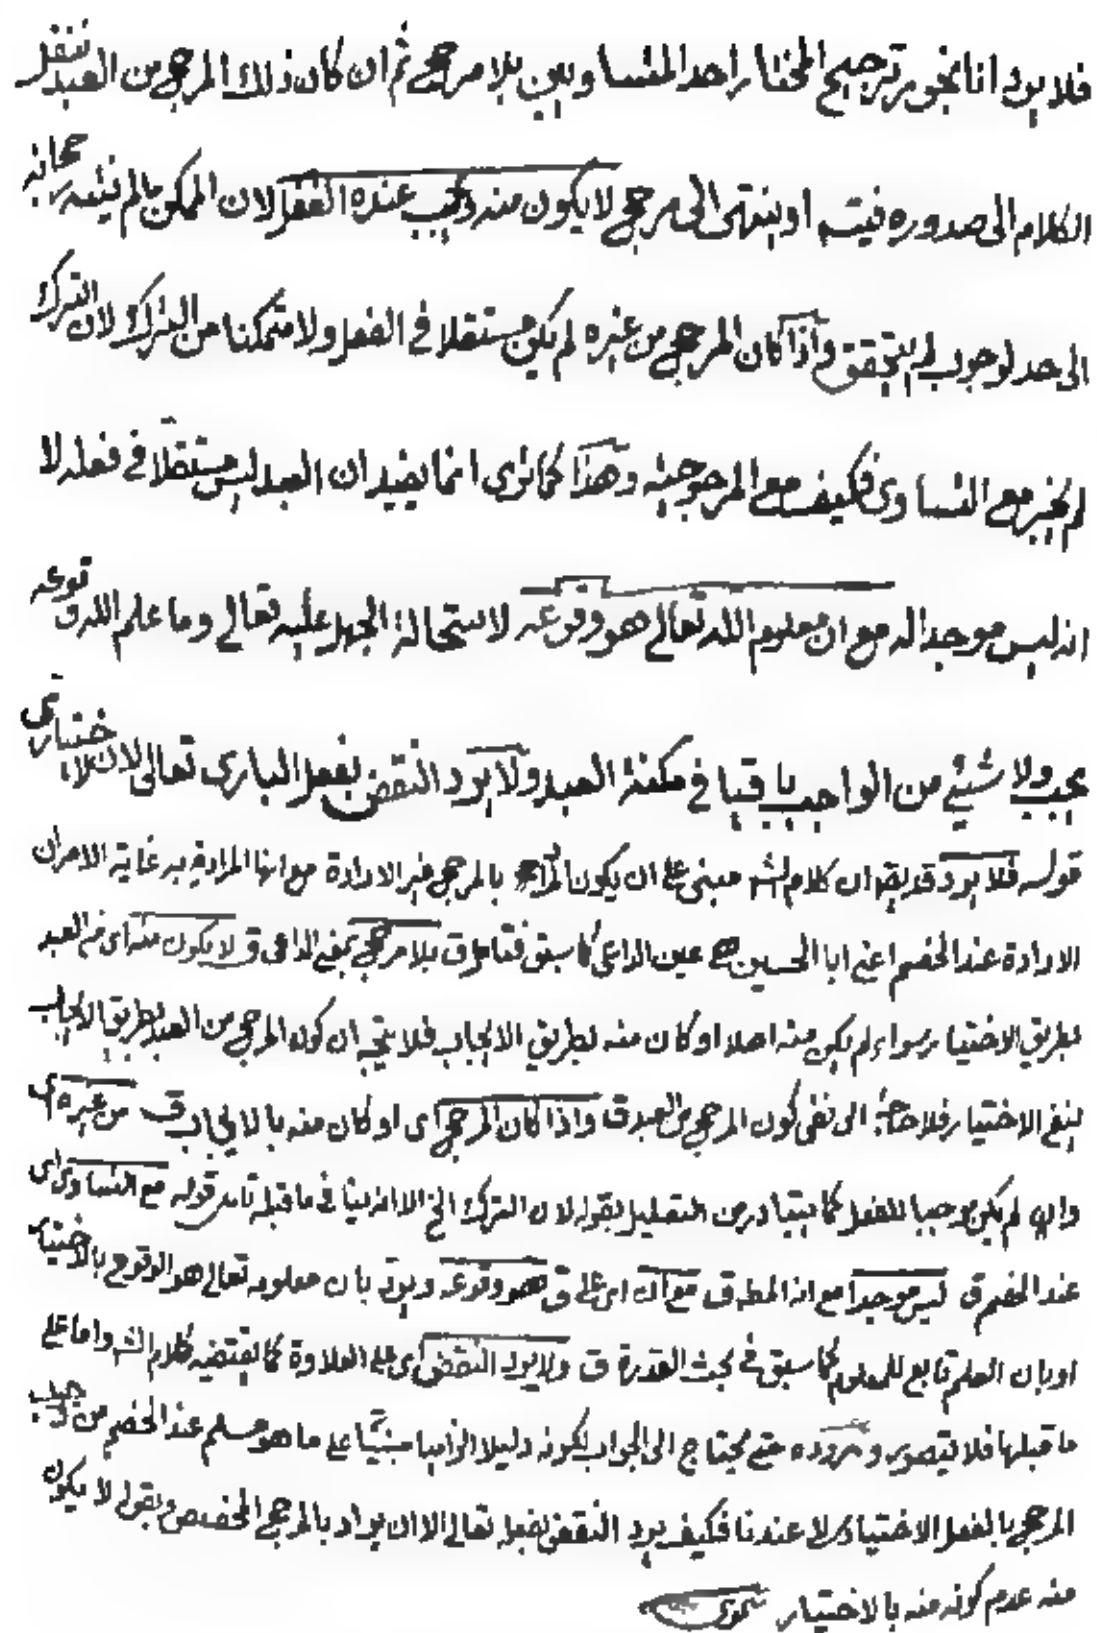 فلا يرد انا نجوز ترجيح المختار احد المتساويين بلا مرجح ثم ان كان ذلك المرجح من العبد ننقل
الكلام الى صدوره فيتسـ او ينتهى الى مرجح لا يكون منه ويجب عنده الفعل لان الممكن مالم ينته رجحانه
الى حد لوجوب لم يتحقق واذا كان المرجح من غيره لم يكن مستقلا في الفعل ولا متمكنا من الترك لان الترك
لم يجز مع التساوى فكيف مع المرجوحية وهذا كما ترى انما يفيد ان العبد ليس مستقلا في فعله لا
انه ليس موجدا له مع ان معلوم الله تعالى هو وقوعه لاستحالة الجهل عليه تعالى وما علم الله وقوعه
يجب ولا شيئ من الواجب باقيا في مكنة العبد ولا يرد النقض بفعل البارى تعالى لان الاختيارى
قوله فلا يرد قد يقه ان كلام الشه مبنى على ان يكون المراد بالمرجح غير الارادة مع انها المراد به غاية الامر ان
الارادة عند الخصم اعنى ابا الحسين هى عين الداعى كما سبق فتامل ق بلا مرجح بمعنى الداعى ق لا يكون منه اى من العبد
بطريق الاختيار سواء لم يكن منه اصلا او كان منه بطريق الايجاب فلا يتجه ان كون المرجح من العبد بطريق الايجاب
ينفى الاختيار فلا حاجة الى نفى كون المرجح من العبد ق واذا كان المرجح اى او كان منه بالايجاب ق من غيره اى
وان لم يكن موجبا للفعل كما يتبادر من التعليل بقوله لان الترك الخ الا انه ينافى ما قبله تامل قوله مع التساوى اى
عند الخصم ق ليس موجدا مع انه المط ق مع ان اى على ق هو وقوعه ويرد بان معلومه تعالى هو الوقوع بالاختيار
او بان العلم تابع للمعلوم كما سبق في بحث القدرة ق ولا يرد النقض اى على العلاوة كما يقتضيه كلام الشه واما على
ما قبلها فلا يتصور وروده حتى يحتاج الى الجواب لكونه دليلا الزاميا مبنيا على ما هو مسلم عند الخصم من وجوب
المرجح بالفعل الاختيارى لا عندنا فكيف يرد النقض بفعله تعالى الا ان يراد بالمرجح المخصص وبقوله لا يكون
منه عدم كونه منه بالاختيار